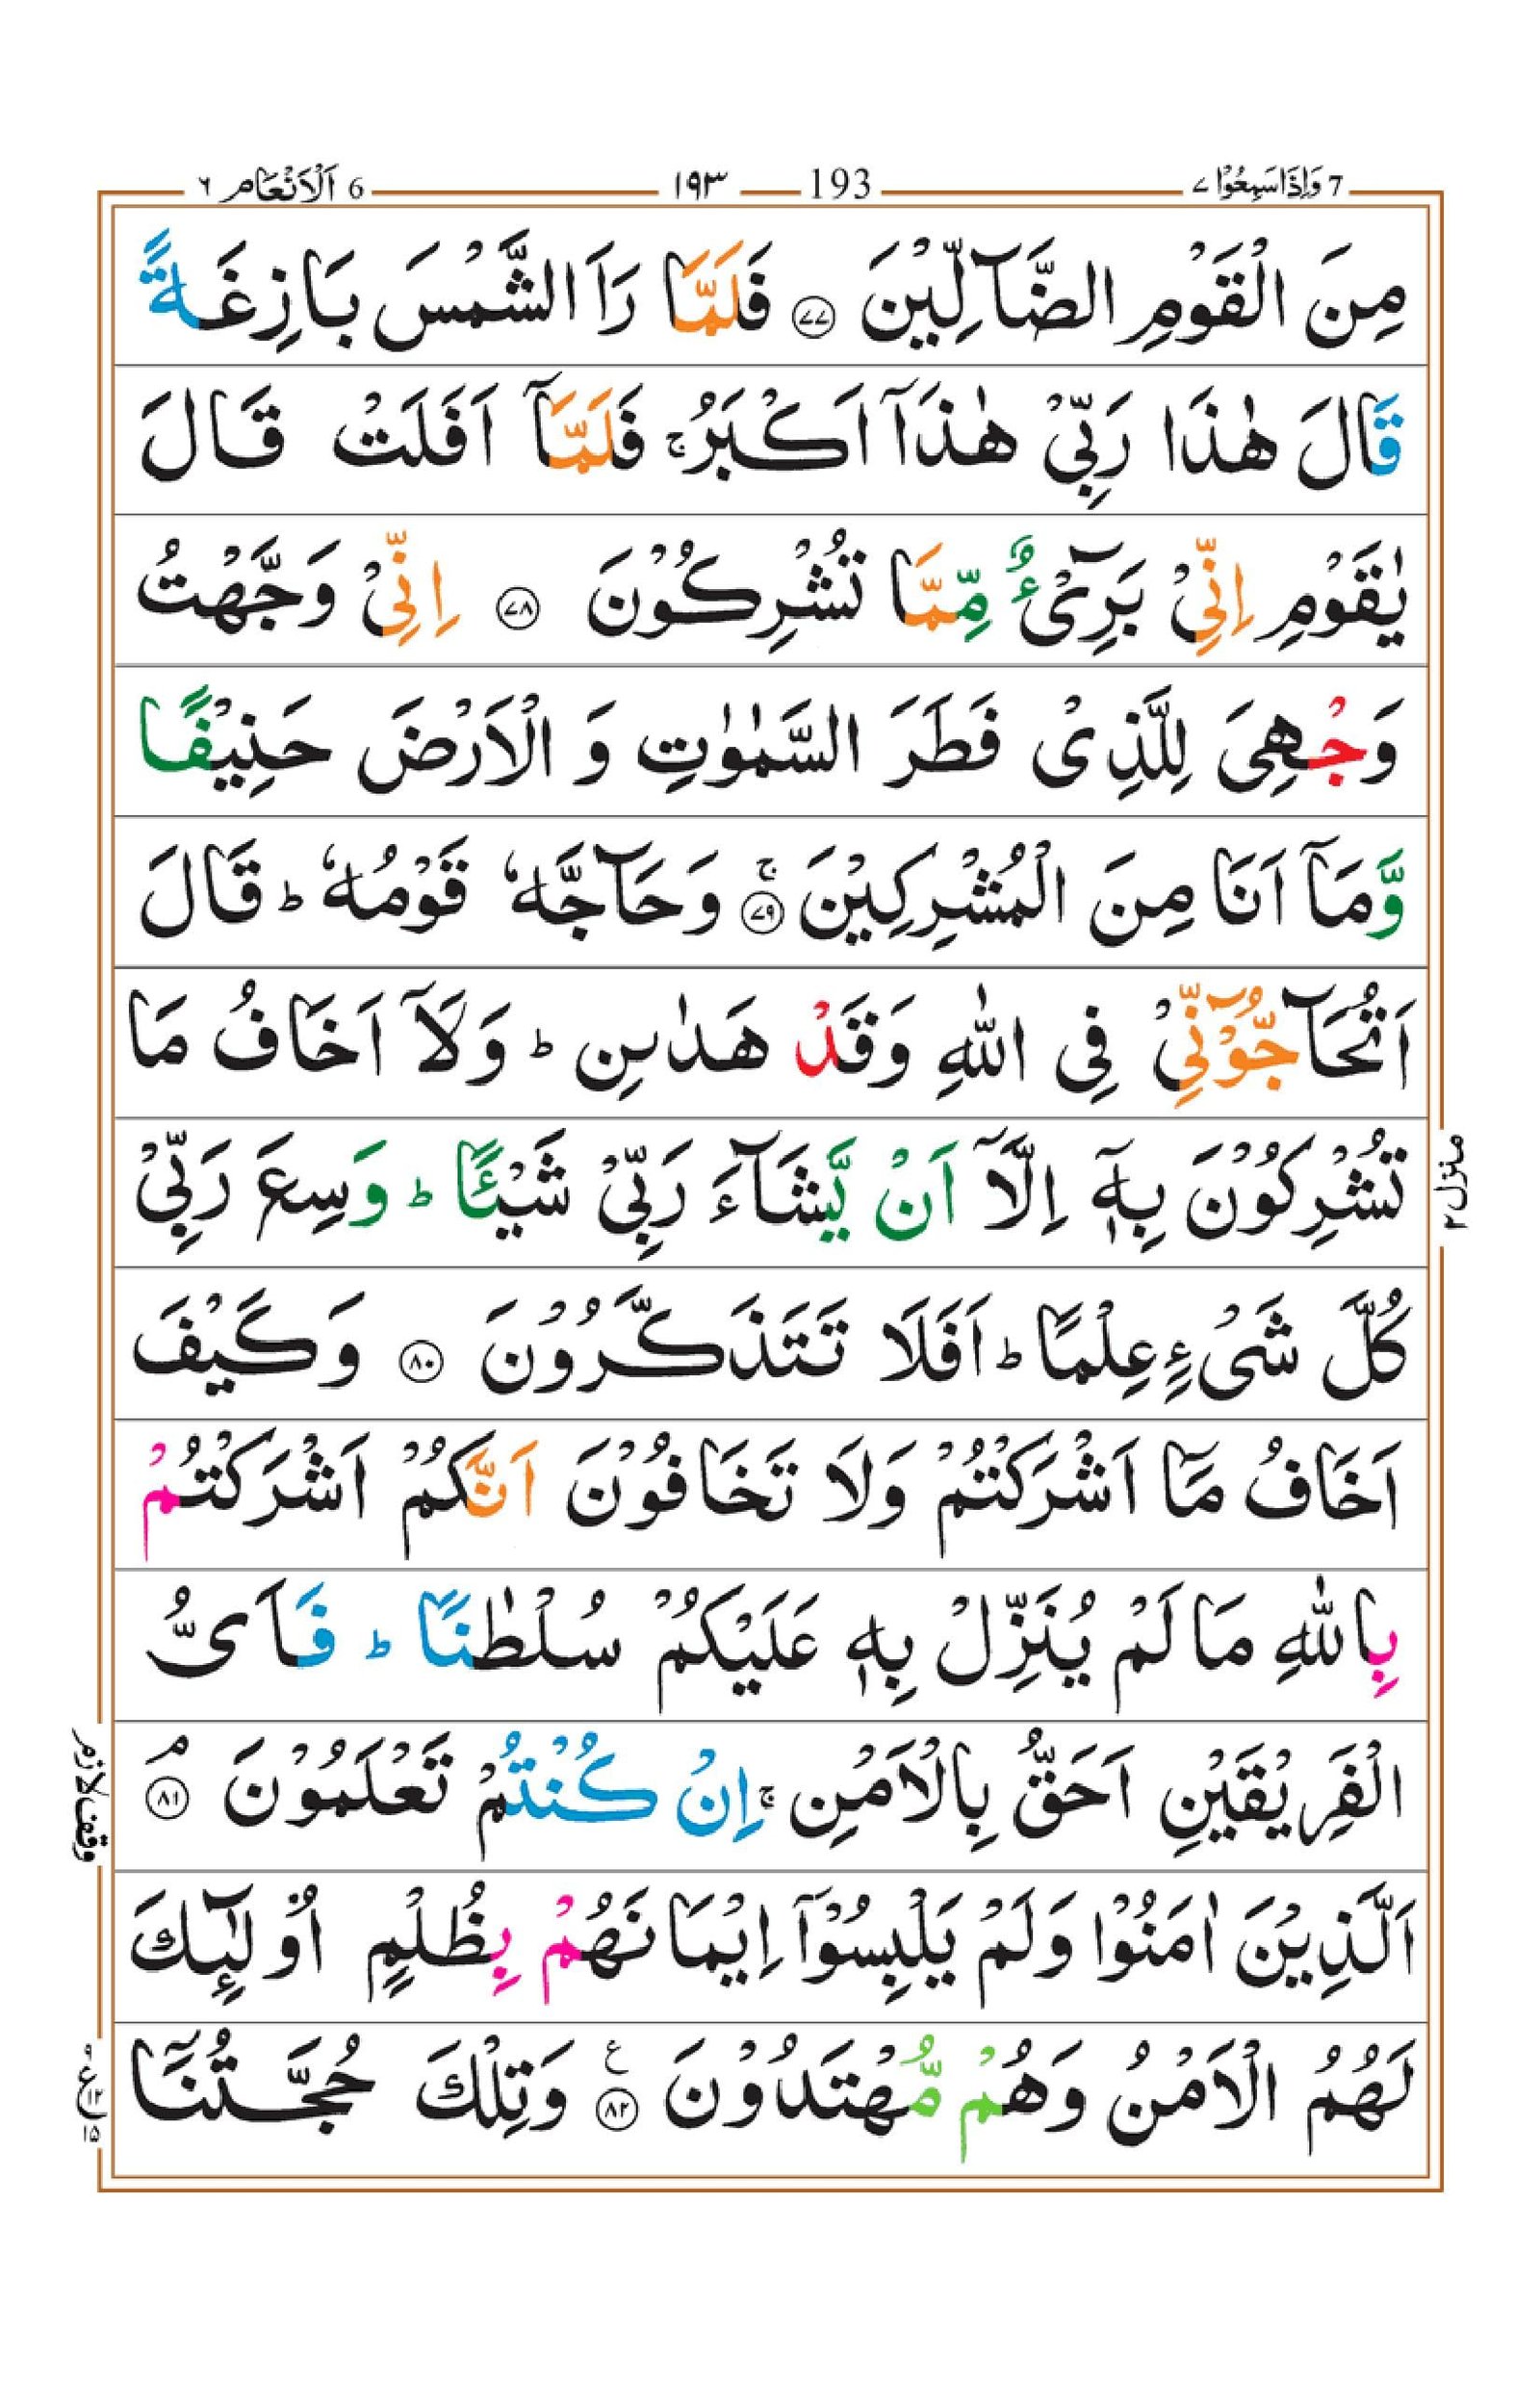 7 وَاِذَا سَمِعُوْا ٧ 193 ١٩٣ 6 اَلْاَنْعَام ٦
مِنَ الْقَوْمِ الضَّآلِّيْنَ ﴿٧٧﴾ فَلَمَّا رَاَ الشَّمْسَ بَازِغَةً
قَالَ هٰذَا رَبِّيْ هٰذَآ اَكْبَرُ ۚ فَلَمَّآ اَفَلَتْ قَالَ
يٰقَوْمِ اِنِّيْ بَرِيْٓءٌ مِّمَّا تُشْرِكُوْنَ ﴿٧٨﴾ اِنِّيْ وَجَّهْتُ
وَجْهِيَ لِلَّذِيْ فَطَرَ السَّمٰوٰتِ وَ الْاَرْضَ حَنِيْفًا
وَّمَآ اَنَا مِنَ الْمُشْرِكِيْنَ ۚ﴿٧٩﴾ وَحَآجَّهٗ قَوْمُهٗ ؕ قَالَ
اَتُحَآجُّوْٓنِّيْ فِي اللّٰهِ وَقَدْ هَدٰىنِ ؕ وَلَآ اَخَافُ مَا
تُشْرِكُوْنَ بِهٖٓ اِلَّآ اَنْ يَّشَآءَ رَبِّيْ شَيْـًٔا ؕ وَسِعَ رَبِّيْ
كُلَّ شَيْءٍ عِلْمًا ؕ اَفَلَا تَتَذَكَّرُوْنَ ﴿٨٠﴾ وَكَيْفَ
اَخَافُ مَآ اَشْرَكْتُمْ وَلَا تَخَافُوْنَ اَنَّكُمْ اَشْرَكْتُمْ
بِاللّٰهِ مَا لَمْ يُنَزِّلْ بِهٖ عَلَيْكُمْ سُلْطٰنًا ؕ فَاَيُّ
الْفَرِيْقَيْنِ اَحَقُّ بِالْاَمْنِ ۚ اِنْ كُنْتُمْ تَعْلَمُوْنَ ۘ﴿٨١﴾
اَلَّذِيْنَ اٰمَنُوْا وَلَمْ يَلْبِسُوْٓا اِيْمَانَهُمْ بِظُلْمٍ اُولٰٓئِكَ
لَهُمُ الْاَمْنُ وَهُمْ مُّهْتَدُوْنَ ﴿٨٢﴾ ع وَتِلْكَ حُجَّتُنَآ
منزل ٢
وقف لازم
ع ١٥